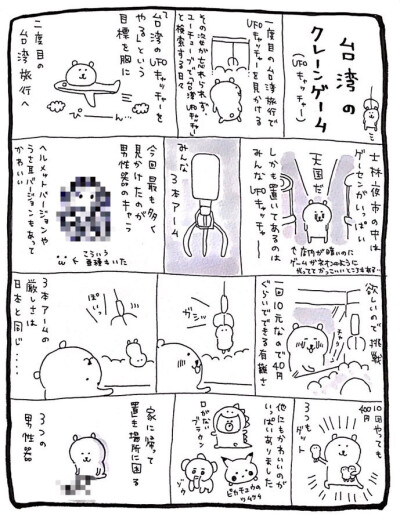 台湾の
クレーンゲーム
(UFOキャッチャー)
一度目の台湾旅行で
UFOキャッチャーを見かける
その姿が忘れられず、
ユーチューブで「台湾UFOキャッチャー」
と検索する日々
台湾のUFOキャッチャーを
やるぞという
目標を胸に
ぴーん…
二度目の
台湾旅行へ
士林夜市の中は
ゲーセンがいっぱい
天国だ
しかも置いてあるのは
みんなUFOキャッチャー
↑店内が暗いのに
ゲームがネオンのように
光っててかっこいいところもある
みんな
3本アーム
今回最も多く
見かけたのが
男性器のキャラ
ヘルメットバージョンや
うさ耳バージョンもあって
かわいい
こういう
亜種もいた
欲しいので挑戦
チャッ
一回10元なので40円
ぐらいでできる有難さ
ガシッ
ぽいっ
3本アームの
厳しさは
日本と同じ....
10回やっても
400円
3つもゲット
他にもかわいいのが
いっぱいありました
口がない
ブラウン
ゾウ
ピカチュウの
ワイワイ
家に帰って
置き場所に困る
3つの
男性器